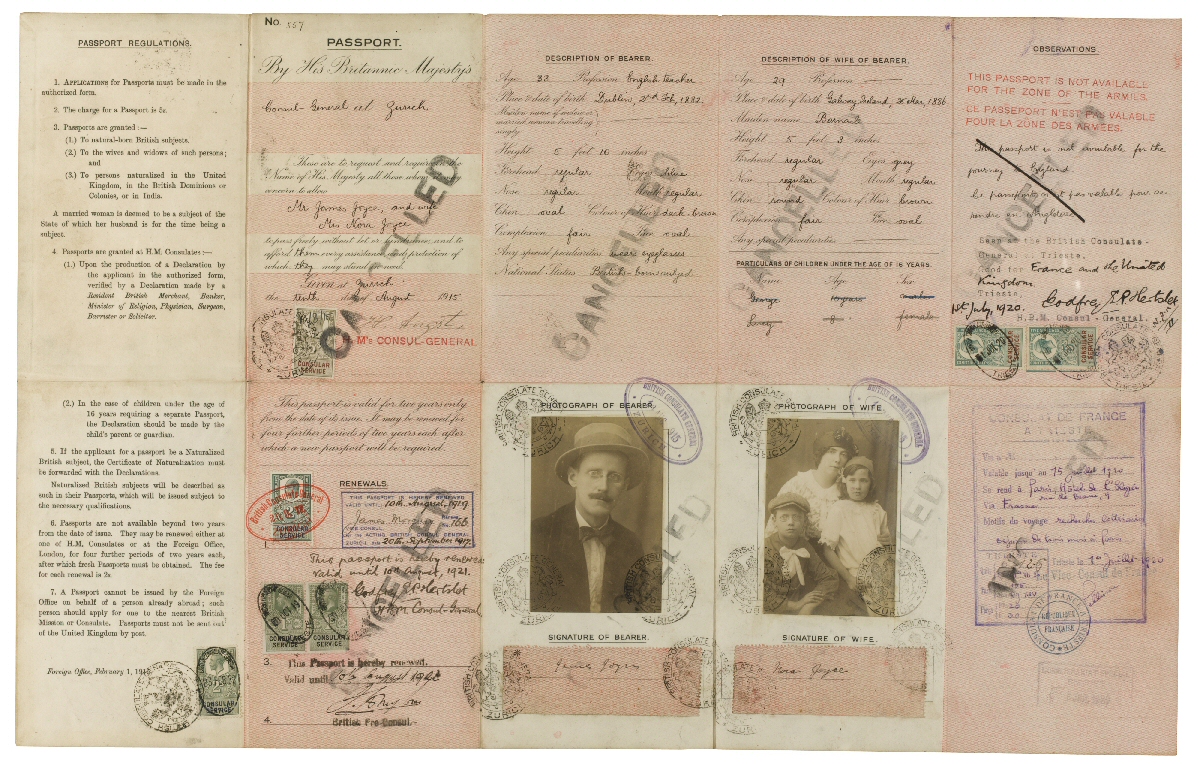 PASSPORT REGULATIONS.
1. APPLICATIONS for Passports must be made in the
authorized form.
2. The charge for a Passport is 5s.
3. Passports are granted :—
(1.) To natural-born British subjects.
(2.) To the wives and widows of such persons;
and
(3.) To persons naturalized in the United
Kingdom, in the British Dominions or
Colonies, or in India.
A married woman is deemed to be a subject of the
State of which her husband is for the time being a
subject.
4. Passports are granted at H.M. Consulates :—
(1.) Upon the production of a Declaration by
the applicant in the authorized form,
verified by a Declaration made by a
Resident British Merchant, Banker,
Minister of Religion, Physician, Surgeon,
Barrister or Solicitor.
(2.) In the case of children under the age of
16 years requiring a separate Passport,
the Declaration should be made by the
child's parent or guardian.
5. If the applicant for a passport be a Naturalized
British subject, the Certificate of Naturalization must
be forwarded with the Declarations.
Naturalized British subjects will be described as
such in their Passports, which will be issued subject to
the necessary qualifications.
6. Passports are not available beyond two years
from the date of issue. They may be renewed either at
one of H.M. Consulates or at the Foreign Office,
London, for four further periods of two years each,
after which fresh Passports must be obtained. The fee
for each renewal is 2s.
7. A Passport cannot be issued by the Foreign
Office on behalf of a person already abroad; such
person should apply for one to the nearest British
Mission or Consulate. Passports must not be sent out
of the United Kingdom by post.
Foreign Office, February 1, 1915.
CONSULAR
SERVICE
No. 557
PASSPORT.
By His Britannic Majesty's
Consul-General at Zurich.
These are to request and require in the
Name of His Majesty all those whom it may
concern to allow
Mr James Joyce, and wife
Mrs Nora Joyce
to pass freely without let or hindrance, and to
afford them every assistance and protection of
which they may stand in need.
Given at Zurich
the tenth day of August 1915
H.M's CONSUL-GENERAL
CANCELLED
CONSULAR
SERVICE
This passport is valid for two years only
from the date of its issue. It may be renewed for
four further periods of two years each after
which a new Passport will be required.
RENEWALS.
British Consulate General
CONSULAR
SERVICE
THIS PASSPORT IS HEREBY RENEWED
VALID UNTIL 10th August, 1919
VICE CONSUL
ZURICH 20th September 1917
1.
This passport is hereby renewed
valid until 10th August, 1921.
Godfrey Hertslet
H.B.M. Consul-General
CONSULAR
SERVICE
CONSULAR
SERVICE
3. This Passport is hereby renewed.
Valid until 10th August
British Pro-Consul.
4.
CANCELLED
DESCRIPTION OF BEARER.
Age 33 Profession English teacher
Place & date of birth Dublin, 2nd Feb, 1882
Maiden name if widow or
married woman travelling
singly
Height 5 feet 10 inches
Forehead regular Eyes blue
Nose regular Mouth regular
Chin oval Colour of Hair dark brown
Complexion fair Face oval
Any special peculiarities wears eyeglasses
National Status British-born subject
CANCELLED
DESCRIPTION OF WIFE OF BEARER.
Age 29 Profession
Place & date of birth Galway Ireland, 1886
Maiden name Barnacle
Height 5 feet 3 inches
Forehead regular Eyes grey
Nose regular Mouth regular
Chin round Colour of Hair brown
Complexion fair Face oval
Any special peculiarities
PARTICULARS OF CHILDREN UNDER THE AGE OF 16 YEARS.
Name Age Sex
George 10 years male
Lucy 8 female
CANCELLED
PHOTOGRAPH OF BEARER
PHOTOGRAPH OF WIFE
BRITISH CONSULATE GENERAL
ZURICH
BRITISH CONSULATE GENERAL
ZURICH
SIGNATURE OF BEARER.
James Joyce
SIGNATURE OF WIFE.
Nora Joyce
CANCELLED
OBSERVATIONS
THIS PASSPORT IS NOT AVAILABLE
FOR THE ZONE OF THE ARMIES.
CE PASSEPORT N'EST PAS VALABLE
POUR LA ZONE DES ARMÉES.
This passport is not available for the
journey to England
Ce passeport n'est pas valable pour se
rendre en Angleterre
Seen at the British Consulate-
General at Trieste.
Good for France and the United
Kingdom.
Trieste,
1st July, 1920. Godfrey Hertslet
H.B.M. Consul-General.
CANCELLED
CONSULAT DE FRANCE
A TRIESTE
Valable jusqu'au 15 juillet 1920
Se rend à Paris, Hôtel de l'Elysée
rue de Beaune, 9
Via France
Motifs du voyage recherches littéraires
Trieste le 1er juillet 1920
CONSULAT DE FRANCE TRIESTE
RÉPUBLIQUE
FRANÇAISE
CANCELLED